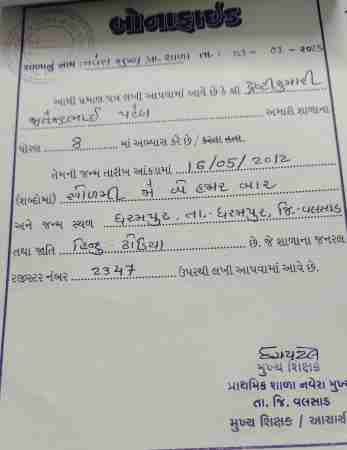 બોનાફાઇડ
શાળાનું નામ : નવેરા મુખ્ય પ્રા. શાળા તા. : 03 - 01 - 2025
આથી પ્રમાણ પત્ર લખી આપવામાં આવે છે કે શ્રી
પટેલ અમારી શાળાના
ધોરણ 8 માં અભ્યાસ કરે છે / કરતા હતા.
તેમની જન્મ તારીખ આંકડામાં 16/05/2012
(શબ્દોમાં) સોળમી મે બે હજાર બાર
અને જન્મ સ્થળ ધરમપુર, તા. ધરમપુર, જિ. વલસાડ
તથા જાતિ હિન્દુ ઢોડિયા છે. જે શાળાના જનરલ
રજીસ્ટર નંબર 2347 ઉપરથી લખી આપવામાં આવે છે.
મુખ્ય શિક્ષક
પ્રાથમિક શાળા નવેરા મુખ્ય
તા. જિ. વલસાડ
મુખ્ય શિક્ષક / આચાર્ય